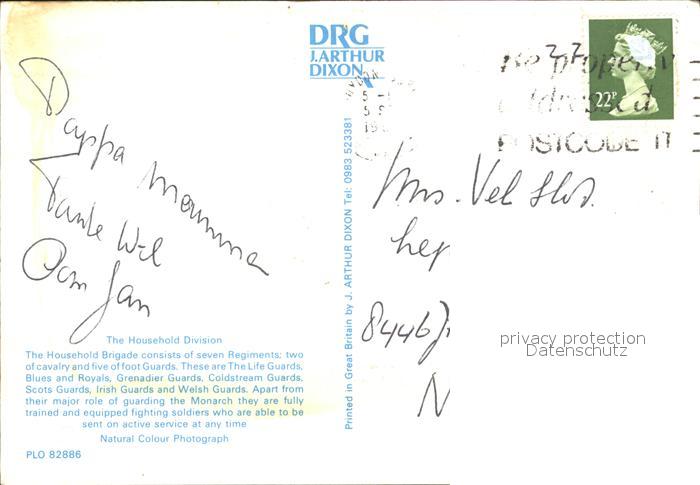 DRG
J. ARTHUR
DIXON
Be properly
addressed
POSTCODE IT
22P
Pappa Mamma
Tante Wil
Oom Jan
Mrs. Vel
8446
N
privacy protection
Datenschutz
Printed in Great Britain by J. ARTHUR DIXON Tel: 0983 523381
The Household Division
The Household Brigade consists of seven Regiments; two
of cavalry and five of foot Guards. These are The Life Guards,
Blues and Royals, Grenadier Guards, Coldstream Guards,
Scots Guards, Irish Guards and Welsh Guards. Apart from
their major role of guarding the Monarch they are fully
trained and equipped fighting soldiers who are able to be
sent on active service at any time
Natural Colour Photograph
PLO 82886